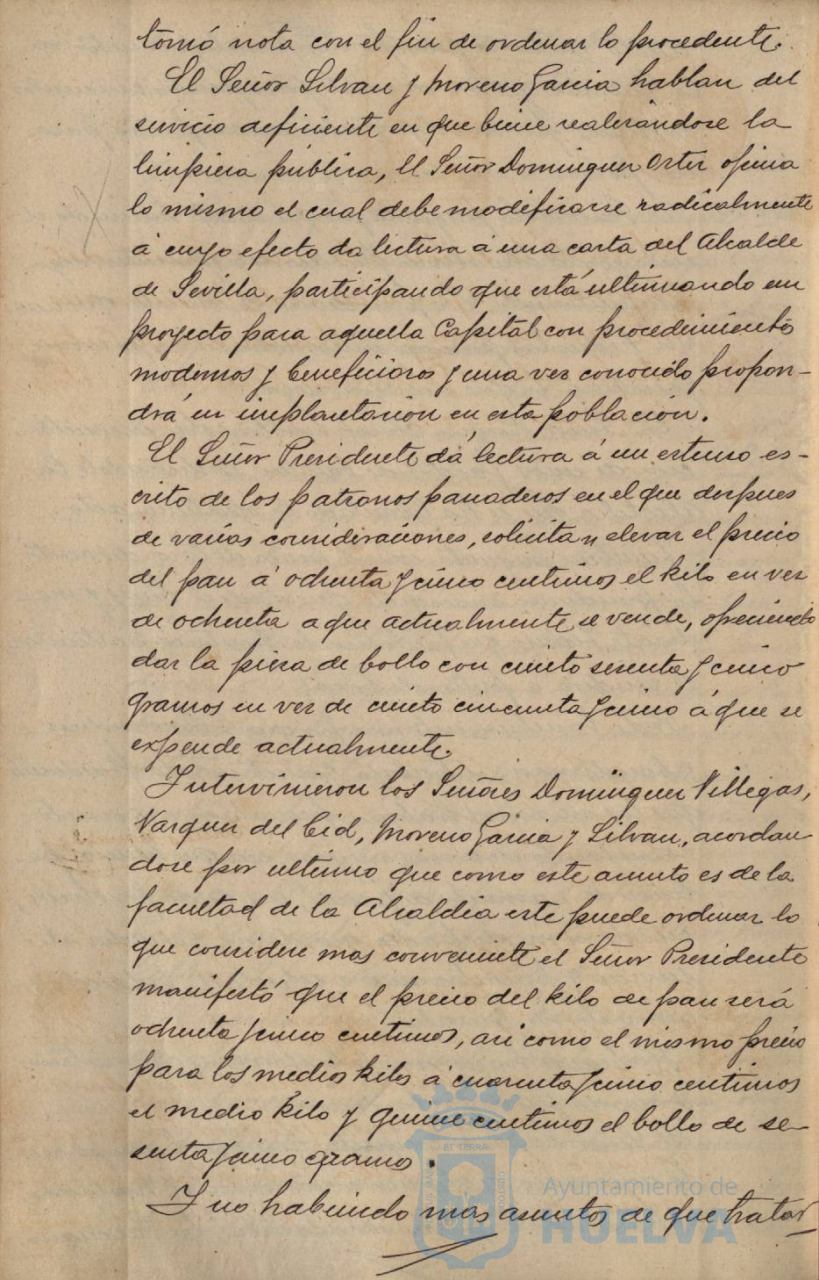 tomó nota con el fin de ordenar lo procedente.
El Señor Silvan y Moreno Garcia hablan del
servicio deficiente en que viene realizandose la
limpieza pública, El Señor Dominguez Ortiz opina
lo mismo el cual debe modificarse radicalmente
á cuyo efecto da lectura á una carta del Alcalde
de Sevilla, participando que está ultimando un
proyecto para aquella Capital con procedimientos
modernos y beneficiosos y una vez conocido propon-
drá su implantacion en esta población.
El Señor Presidente dá lectura á un extenso es-
crito de los patronos panaderos en el que despues
de varias consideraciones, solicitan elevar el precio
del pan á ochenta y cinco centimos el kilo en vez
de ochenta a que actualmente se vende, ofreciendo
dar la pieza de bollo con ciento sesenta y cinco
gramos en vez de ciento cincuenta y cinco á que se
expende actualmente.
Intervinieron los Señores Dominguez Villegas,
Vazquez del Cid, Moreno Garcia y Silvan, acordan
dose por ultimo que como este asunto es de la
facultad de la Alcaldia este puede ordenar lo
que considere mas conveniente el Señor Presidente
manifestó que el precio del kilo de pan será
ochenta y cinco centimos, asi como el mismo precio
para los medios kilos á cuarenta y cinco centimos
el medio kilo y quince centimos el bollo de se-
senta y cinco gramos.
Y no habiendo mas asuntos de que tratar
ET TERRA
Ayuntamiento de
HUELVA